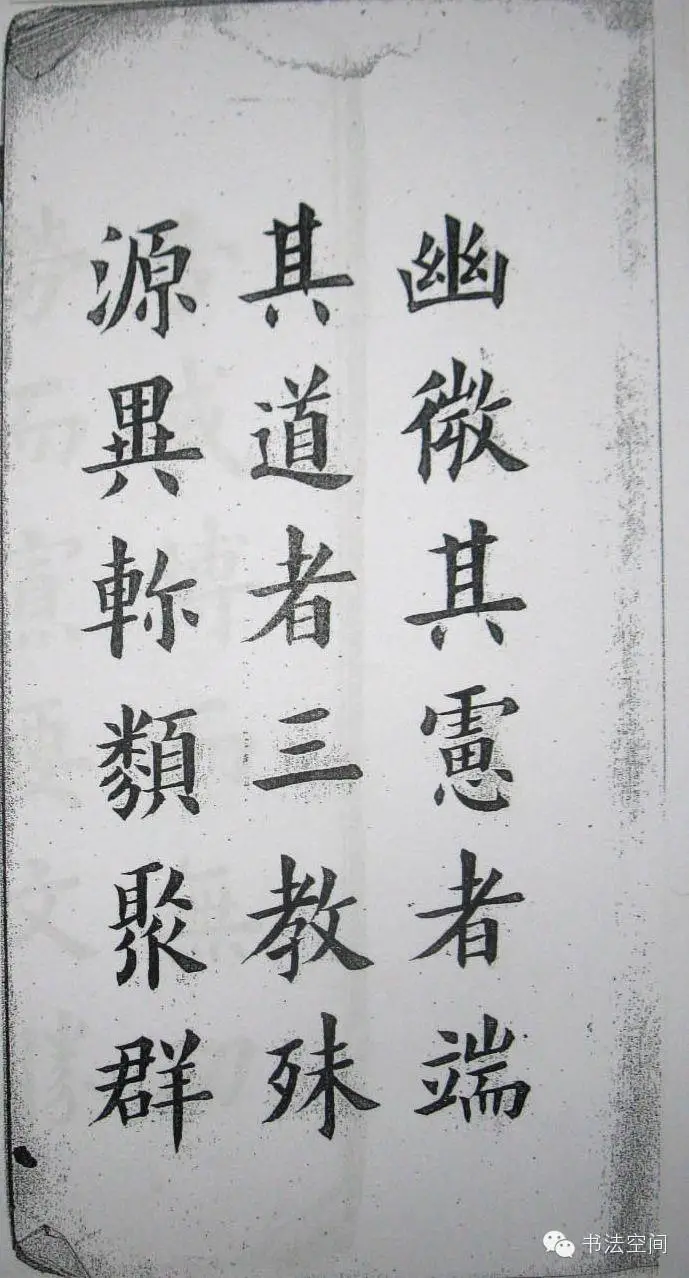 幽微其慮者端
其道者三教殊
源異軫類聚群
书法空间